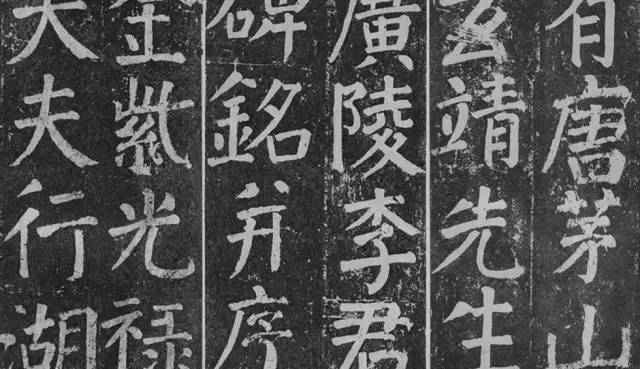 有唐茅山
玄靖先生
廣陵李君
碑銘并序
金紫光禄
大夫行湖